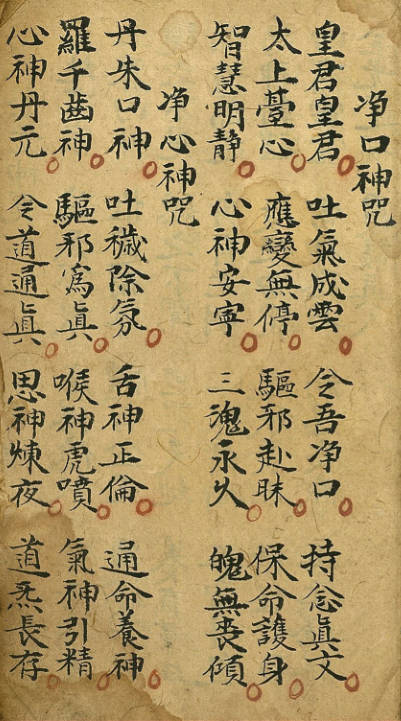 净口神咒
皇君皇君 吐氣成雲 令吾净口 持念眞文
太上臺心 應變無停 驅邪赴昧 保命護身
智慧明静 心神安寧 三魂永久 魄無喪傾
净心神咒
丹朱口神 吐穢除氛 舌神正倫 通命養神
羅千齒神 驅邪爲眞 喉神虎噴 氣神引精
心神丹元 令道通眞 思神煉夜 道炁長存